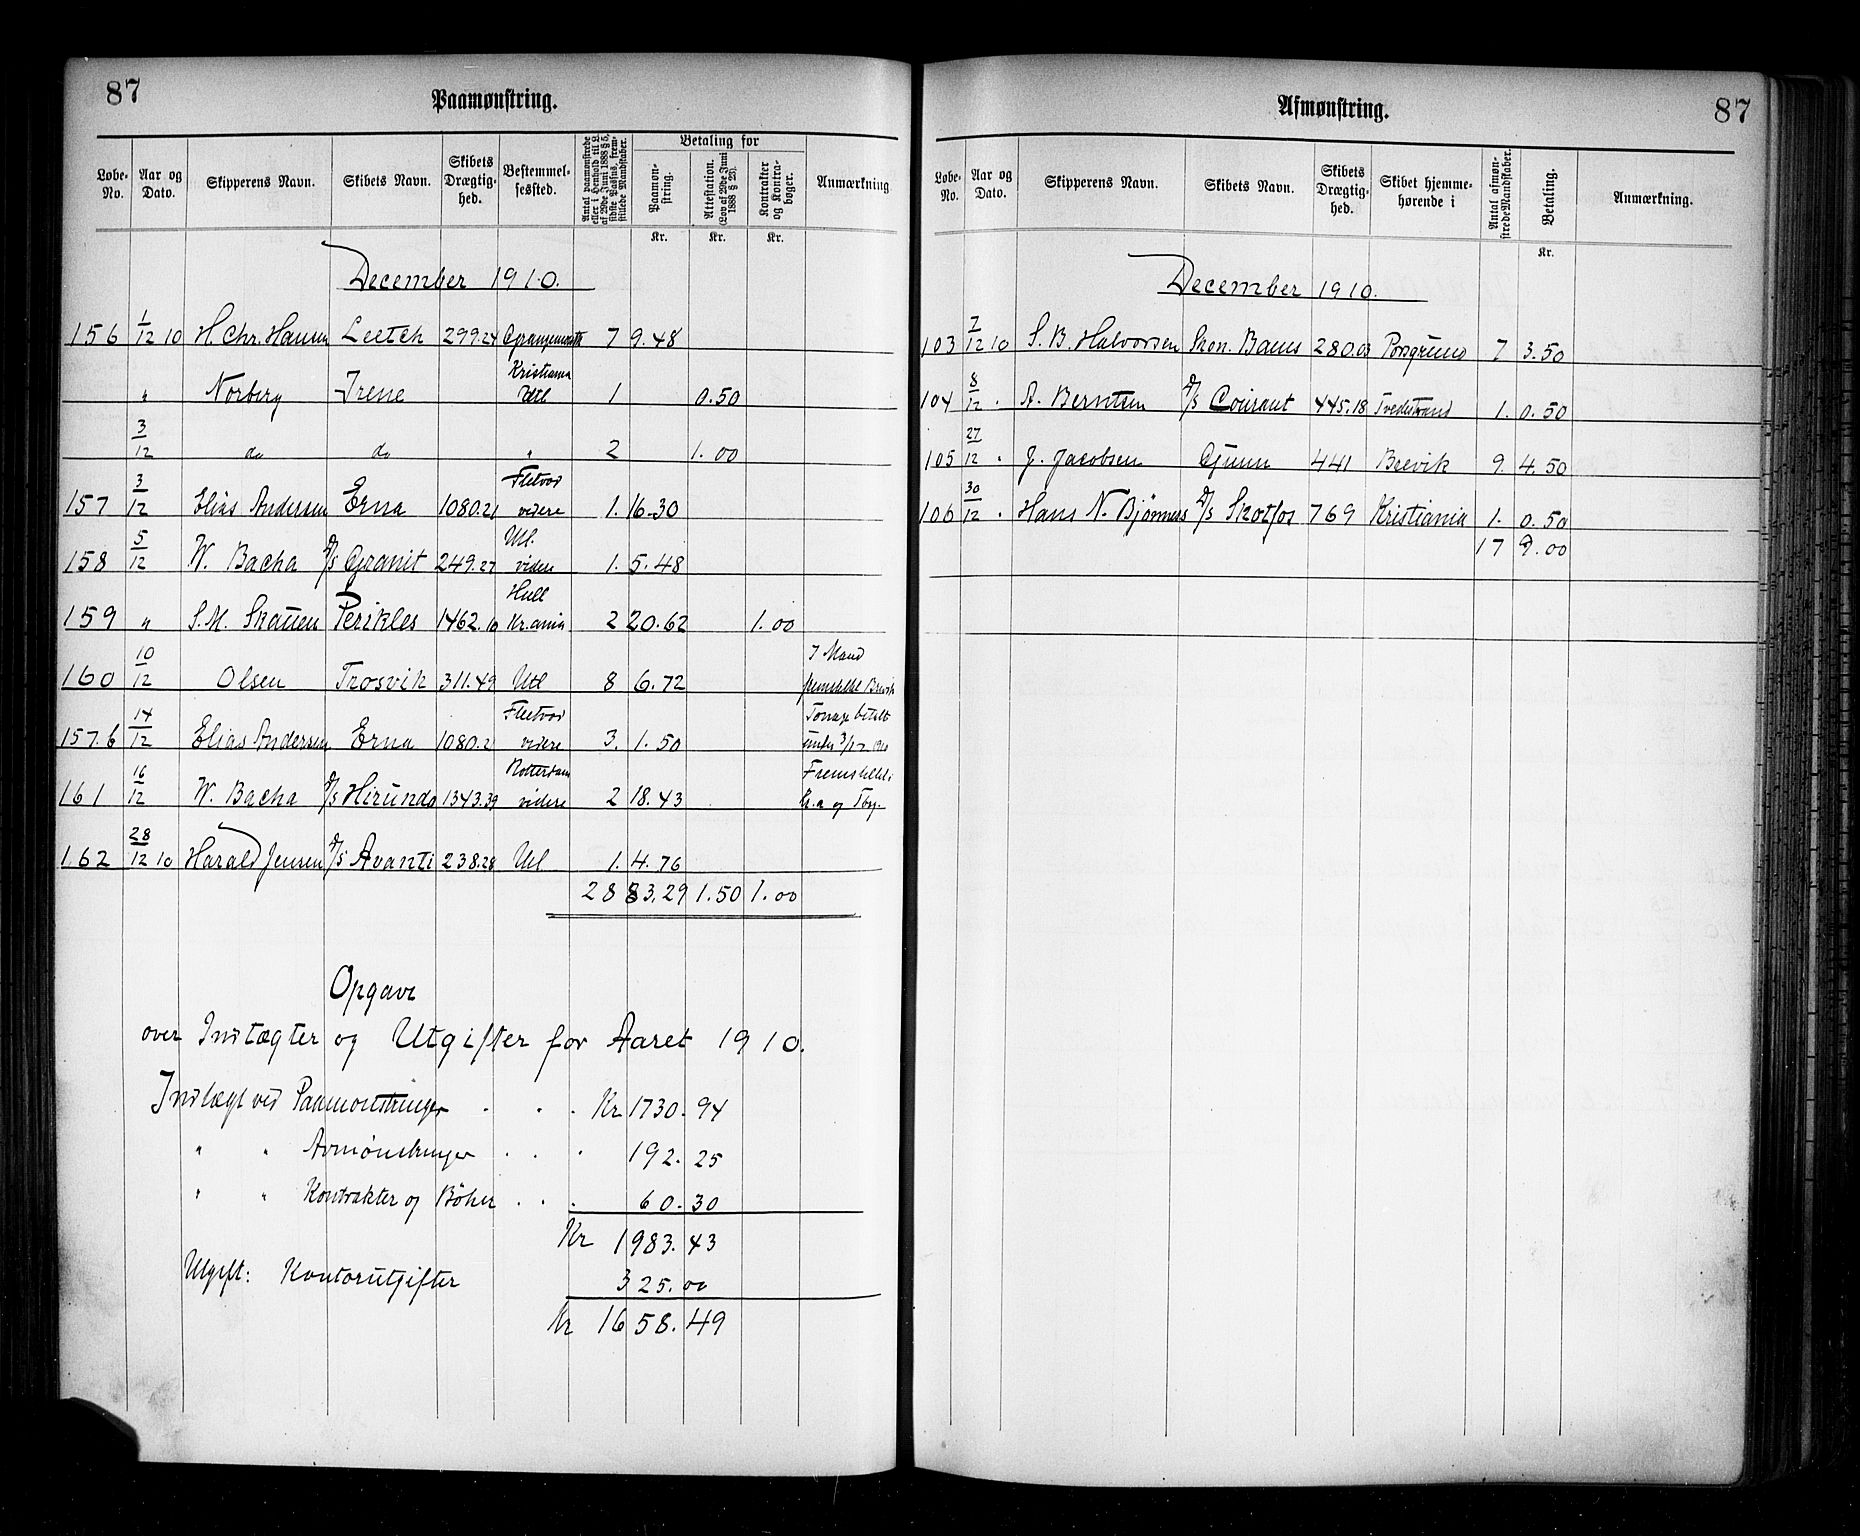 87
Paamønstring.
Løbe-No. Aar og Dato. Skipperens Navn. Skibets Navn. Skibets Drægtighed. Bestemmelsessted. Antal paamønstrede eller i Henhold til L. af 29de Juni 1888 § 5, sidste Passus, fremstillede Mandskaber. Betaling for Paamønstring. Attestation. (Lov af 29de Juni 1888 § 23). Kontrakter og Kontrabøger. Anmærkning
Kr. Kr. Kr.
December 1910.
156 1/12 10 H. Chr. Hansen Leetch 299.24 Grangemouth 7 9.48
" Norberg Irene Kristiania Utl 1 0.50
3/12 do do " 2 1.00
157 3/12 Elias Andersen Erna 1080.21 Fleetvod videre 1. 16.30
158 5/12 W. Bacha D/S Granit 249.27 Utl. videre 1. 5.48
159 " S. M. Skauen Perikles 1462.10 Hull Kr.ania 2 20.62 1.00
160 10/12 Olsen Trosvik 311.49 Utl 8 6.72 7 Mand fremstillet Brevik
157.b 14/12 Elias Andersen Erna 1080.21 Fleetvod videre 3. 1.50 Tonage betalt under 3/12 1910
161 16/12 W. Bacha D/S Hirundo 1343.39 Rotterdam videre 2 18.43 Fremstillet i Kr.a og Tbg.
162 28/12 10 Harald Jensen D/S Avanti 238.28 Utl 1. 4.76
28 83.29 1.50 1.00
Opgave
over Indtægter og Utgifter for Aaret 1910.
Indtægt ved Paamønstringer . . . Kr 1730.94
" " Avmønstringer . . . 192.25
" " Kontrakter og Bøker . . . 60.30
Kr 1983.43
Utgift: Kontorutgifter 325.00
Kr 1658.49
87
Afmønstring.
Løbe-No. Aar og Dato. Skipperens Navn. Skibets Navn. Skibets Drægtighed. Skibet hjemmehørende i Antal afmønstrede Mandskaber. Betaling. Anmærkning.
Kr.
December 1910.
103 7/12 10 S. B. Halvorsen Skon. Bams 280.03 Porsgrund 7 3.50
104 8/12 . A. Berntsen D/S Courant 445.18 Tvedestrand 1. 0.50
105 27/12 . J. Jacobsen Gunn 441 Brevik 9. 4.50
106 30/12 . Hans N. Bjønnes D/S Skotfos 769 Kristiania 1. 0.50
17 9.00